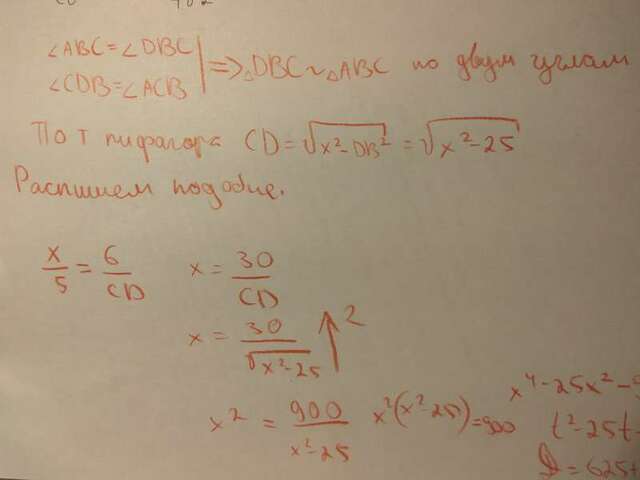 ∠ABC=∠DBC
∠CDB=∠ACB
⇒ △DBC ~ △ABC по двум углам
По т пифагора CD = √(x²-DB²) = √(x²-25)
Распишем подобие.
x/5 = 6/CD x = 30/CD
x = 30/√(x²-25) ↑2
x² = 900/(x²-25) x²(x²-25)=900
x⁴-25x²-
t²-25t-
D=625+